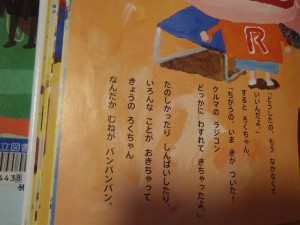 「どうしたの、もう なかなくて
いいんだよ。」
すると ろくちゃん、
「ちがうの。いま きが ついた！
クルマの ラジコン
どっかに わすれて きちゃったよ。」
たのしかったり しんぱいしたり、
いろんな ことが おきちゃって
きょうの ろくちゃん
なんだか むねが パンパンパン。
R
立図書
443